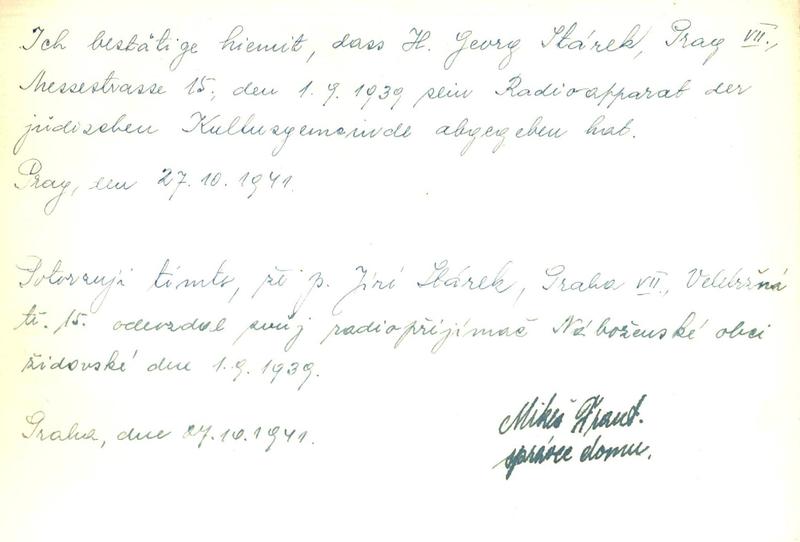 Ich bestätige hiemit, dass H. Georg Stárek, Prag VII.,
Messestrasse 15, den 1.9.1939 sein Radioapparat der
jüdischen Kultusgemeinde abgegeben hat.
Prag, den 27.10.1941.
Potvrzuji tímto, že p. Jiří Stárek, Praha VII., Veletržná
tř. 15. odevzdal svůj radiopřijímač Náboženské obci
židovské dne 1.9.1939.
Praha, dne 27.10.1941.
Mikeš Frant.
správce domu.